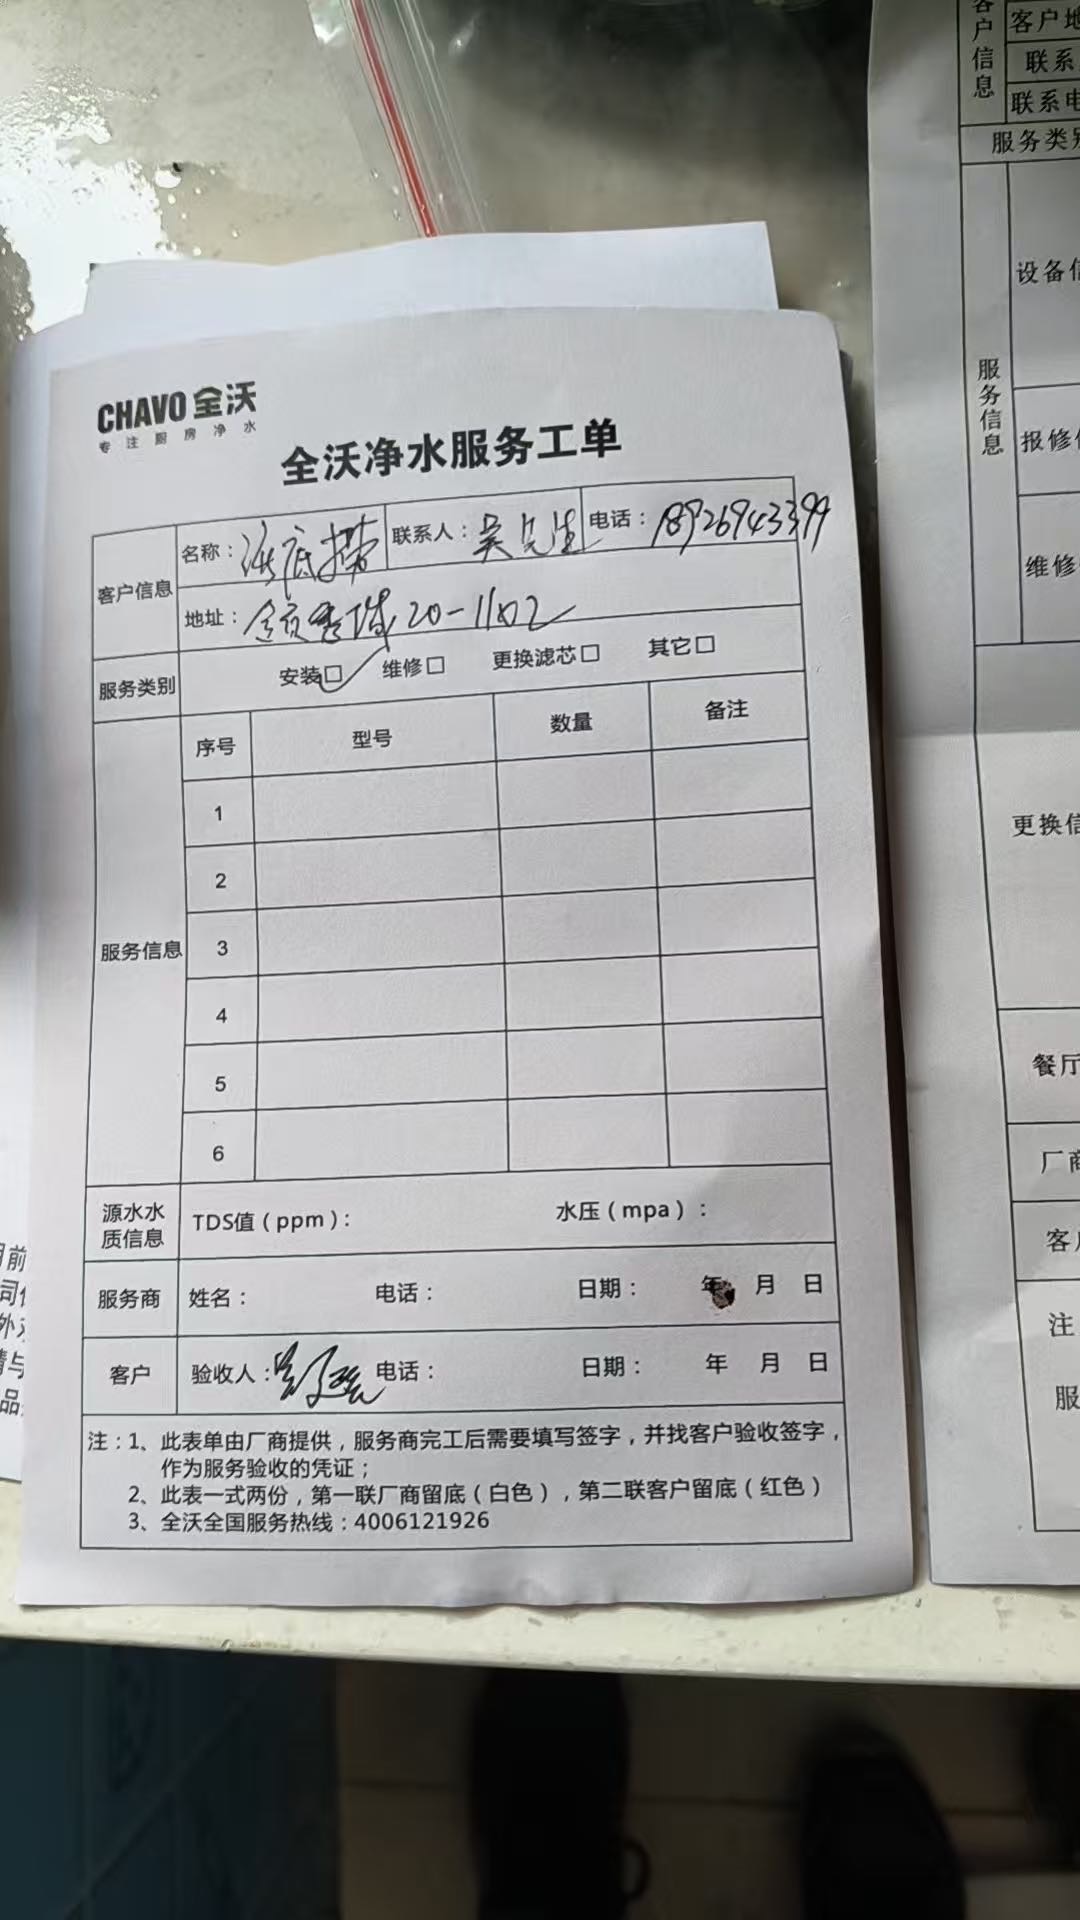 CHAVO 全沃
专注厨房净水
全沃净水服务工单
客户信息 名称：海底捞 联系人：吴先生 电话：18926943399
地址： 20-1102
服务类别 安装☑ 维修□ 更换滤芯□ 其它□
服务信息
序号 型号 数量 备注
1
2
3
4
5
6
源水水质信息 TDS值（ppm）： 水压（mpa）：
服务商 姓名： 电话： 日期： 年 月 日
客户 验收人： 电话： 日期： 年 月 日
注：1、此表单由厂商提供，服务商完工后需要填写签字，并找客户验收签字，
作为服务验收的凭证；
2、此表一式两份，第一联厂商留底（白色），第二联客户留底（红色）
3、全沃全国服务热线：4006121926
客户信息
客户地
联系
联系电
服务类别
服务信息
设备信
报修
维修
更换信
餐厅
厂商
客户
注
服